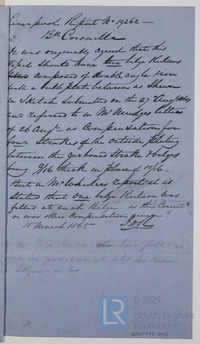 Liverpool Report No 19262 —
Bk Coronilla
It was originally agreed that this
vessel should have two bilge Keelsons
composed of double angle iron
with a bulb plate between as shewn
in Sketch submitted on the 27 Augt/64
and referred to in Mr letter
of 26 Augt as compensation for
four Strakes of the outside plating
between the garboard Strake & bilges
being 9/16 thick in place of 10/16.
But in Mr report it is
stated that one bilge Keelson was
fitted at each bilge is this correct
or was other compensation given?
10 March 1865
© 2021
Lloyd's Register
Foundation